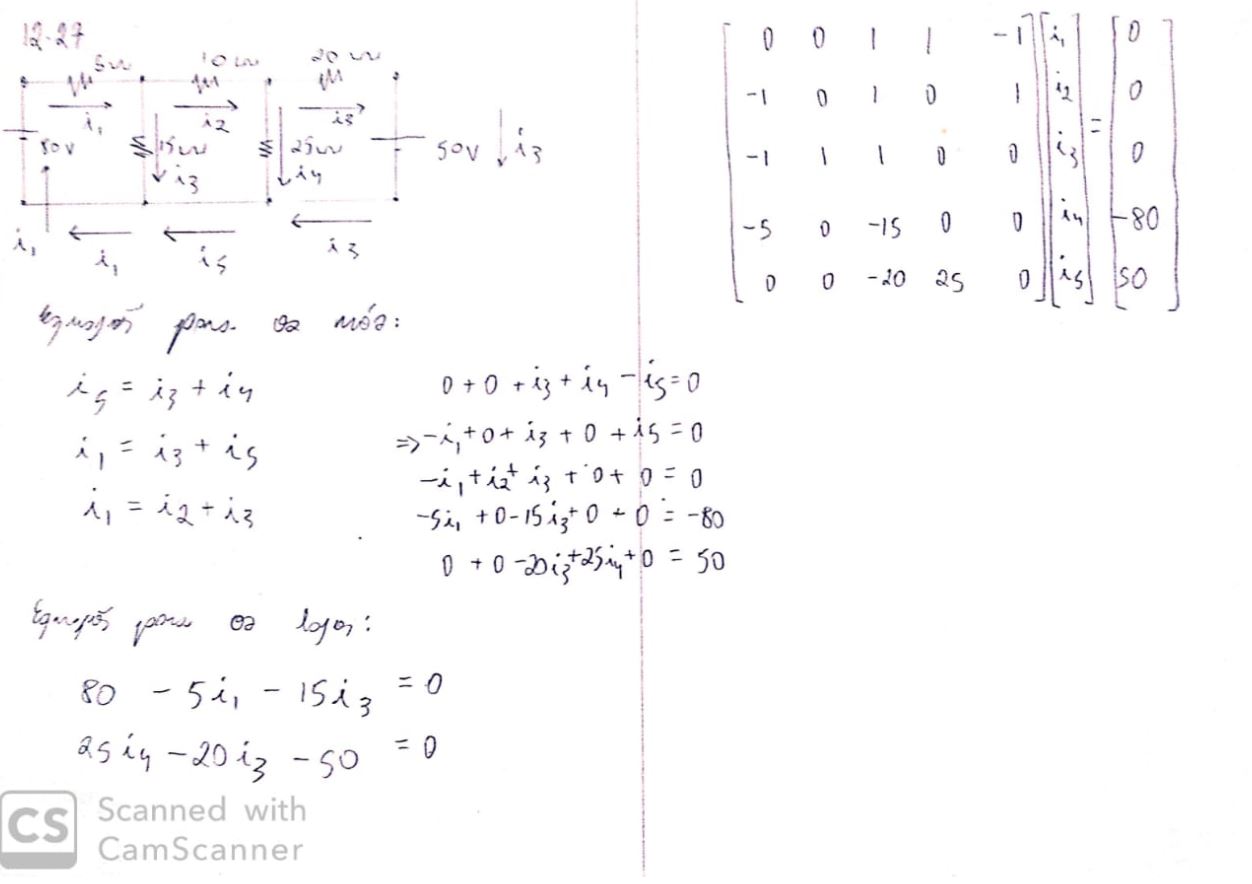 12-27
5w 10w 20w
i₁ i₂ i₃
80V 15w 25w 50V i₃
i₃ i₄
i₁ i₁ i₅ i₃
Equações para os nós:
i₅ = i₃ + i₄
i₁ = i₃ + i₅
i₁ = i₂ + i₃
0 + 0 + i₃ + i₄ - i₅ = 0
⇒ -i₁ + 0 + i₃ + 0 + i₅ = 0
-i₁ + i₂ + i₃ + 0 + 0 = 0
-5i₁ + 0 - 15i₃ + 0 + 0 = -80
0 + 0 - 20i₃ + 25i₄ + 0 = 50
Equações para os laços:
80 - 5i₁ - 15i₃ = 0
25i₄ - 20i₃ - 50 = 0
0 0 1 1 -1 i₁ 0
-1 0 1 0 1 i₂ 0
-1 1 1 0 0 i₃ = 0
-5 0 -15 0 0 i₄ -80
0 0 -20 25 0 i₅ 50
CS Scanned with
CamScanner